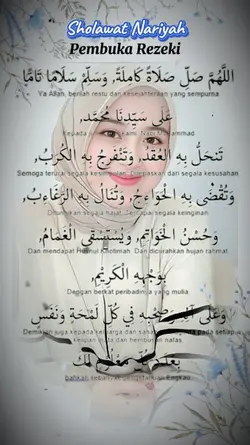 Sholawat Nariyah
Pembuka Rezeki
اللَّهُمَّ صَلِّ صَلَاةً كَامِلَةً, وَسَلِّمْ سَلَامًا تَامًّا
Ya Allah, berilah restu dan kesejahteraan yang sempurna
عَلَى سَيِّدِنَا مُحَمَّدٍ,
Kepada Nabi Muhammad
تَنْحَلُّ بِهِ الْعُقَدُ, وَتَنْفَرِجُ بِهِ الْكُرَبُ,
Semoga terurai segala Dilepaskan dari segala kesusahan
وَتُقْضَى بِهِ الْحَوَائِجُ, وَتُنَالُ بِهِ الرَّغَائِبُ,
Ditunaikan segala hajat Tercapai segala keinginan
وَحُسْنُ الْخَوَاتِمِ, وَيُسْتَسْقَى الْغَمَامُ,
Dan mendapat Husnul Khotimah Dan dicurahkan hujan rahmat
بِوَجْهِهِ الْكَرِيْمِ,
Dengan berkat peribadinya yang mulia
وَعَلَى آلِهِ وَصَحْبِهِ فِي كُلِّ لَمْحَةٍ وَنَفَسٍ
juga kepada keluarga dan pada setiap
dan hembusan nafas
لَكَ